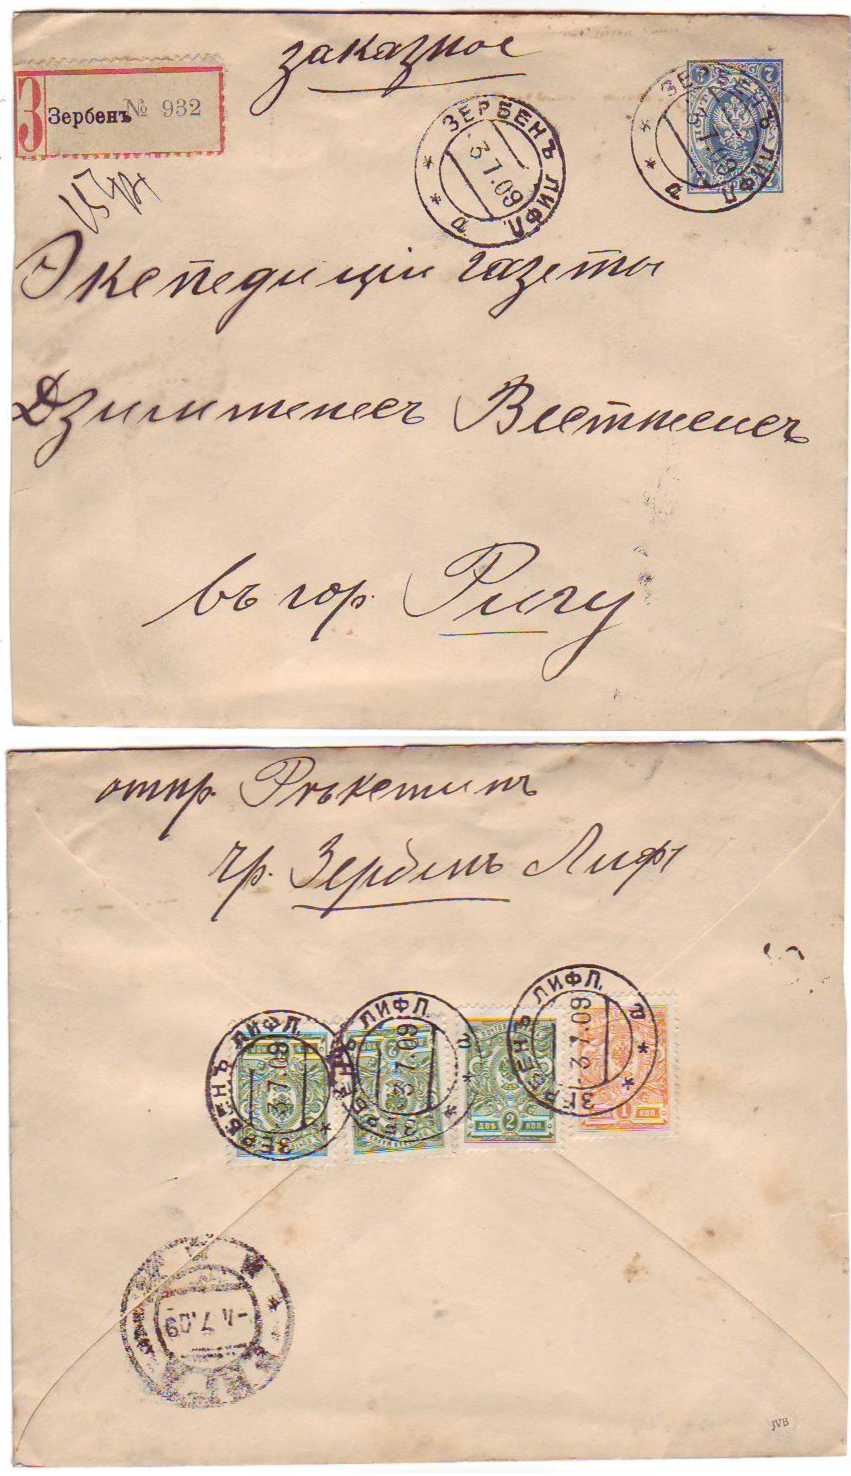 заказное
З Зербенъ № 932
ЗЕРБЕНЪ ЛИФЛ. а
3 7.09
ЗЕРБЕНЪ ЛИФЛ. а
7.09
7
Экспедиціи газеты
Дзимтенес Вестнесисъ
въ гор. Ригу
отпр.
чр. Зербенъ Лифл
ЗЕРБЕНЪ ЛИФЛ.
3.7.09
ЗЕРБЕНЪ ЛИФЛ. а
3.7.09
ЗЕРБЕНЪ ЛИФЛ. а
7.09
ДВѢ 2 КОП.
1 КОП.
-4.7.09
JVB